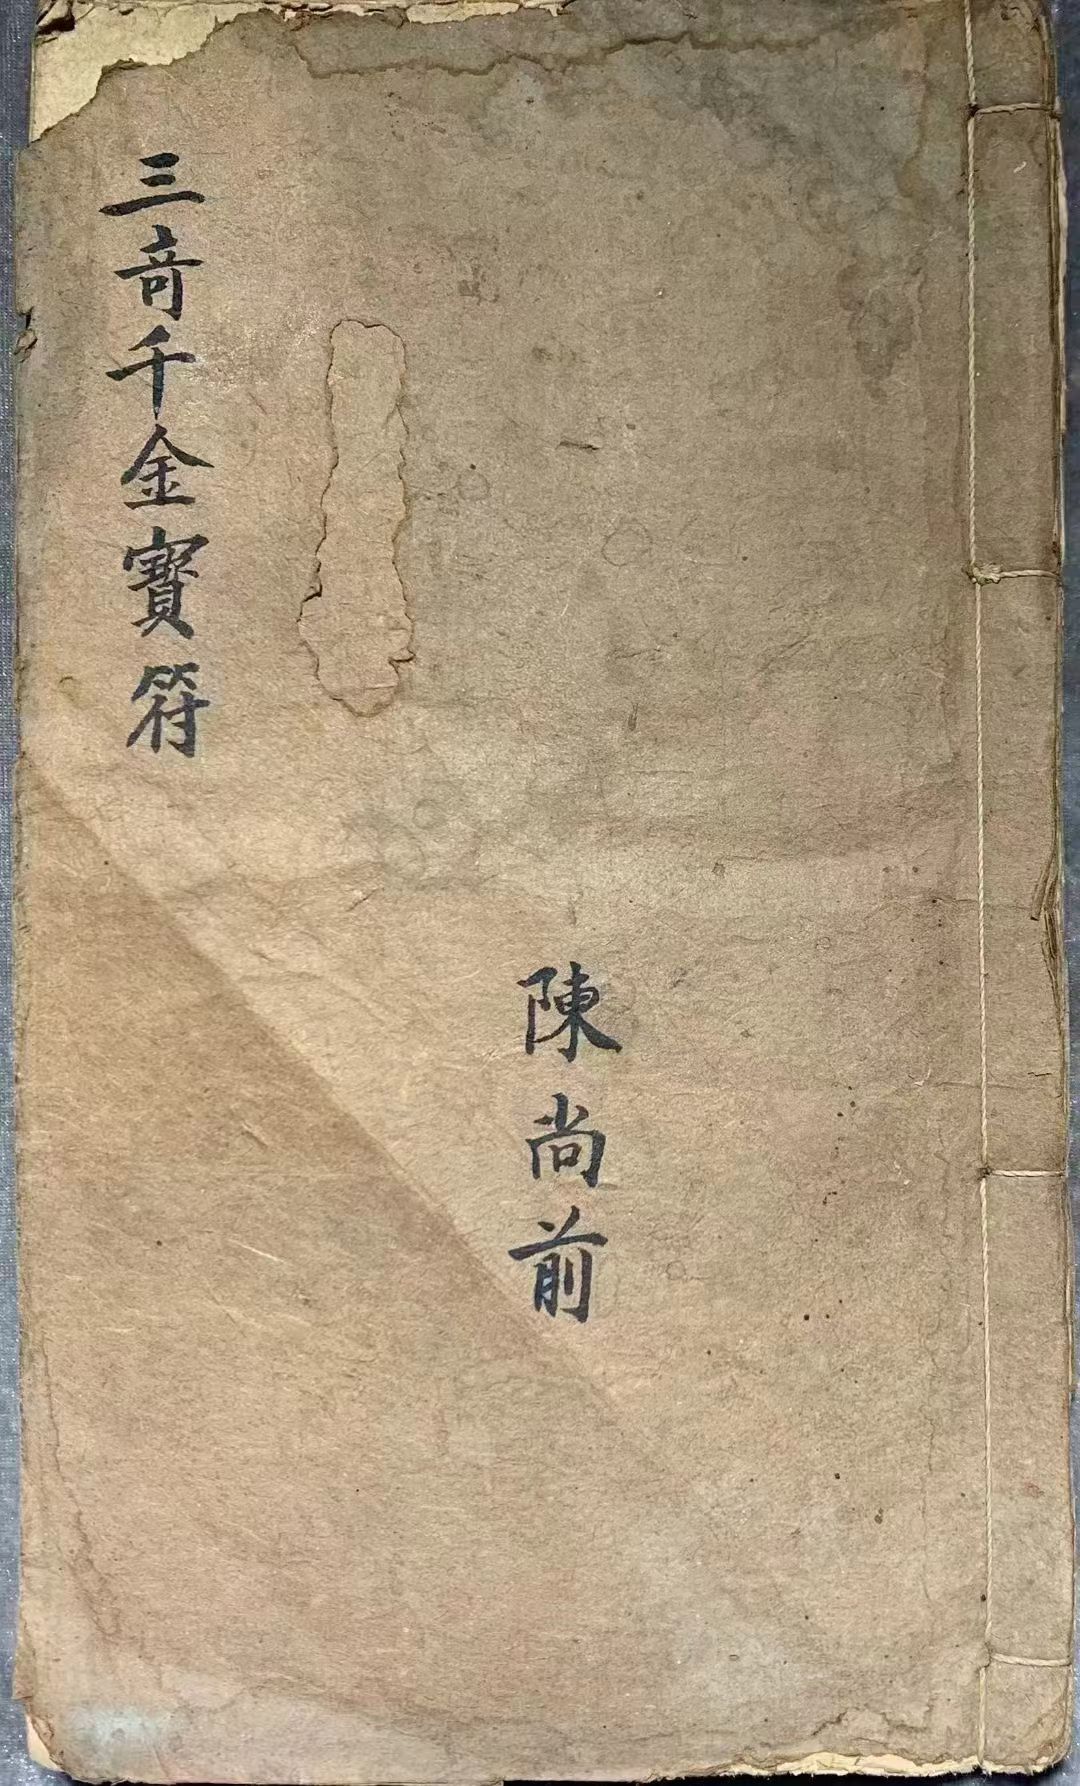 三奇千金寶符
陳尚前